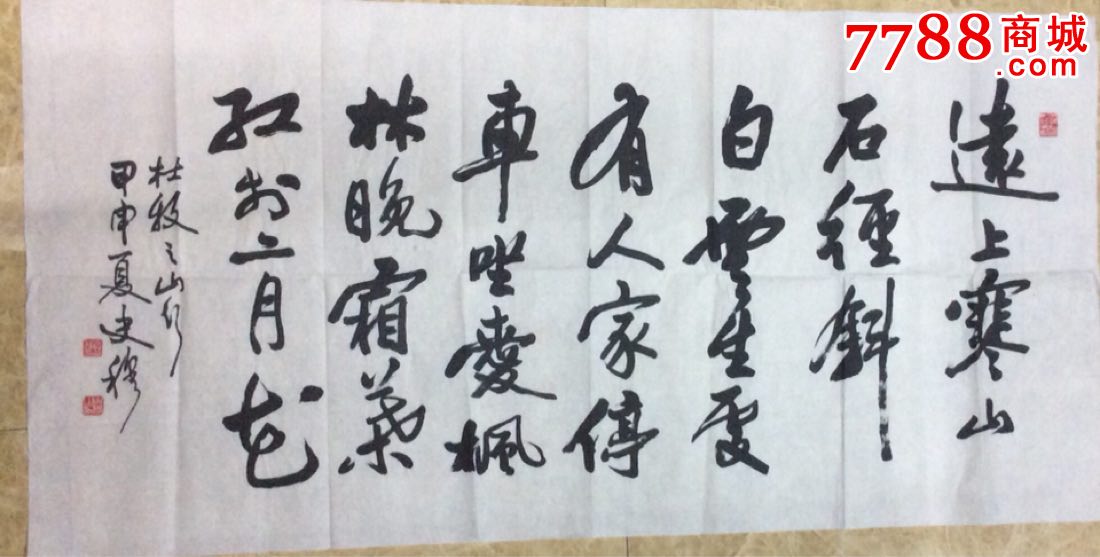 7788商城
.com
遠上寒山
石徑斜
白雲生處
有人家停
車坐愛楓
林晚霜葉
紅於二月花
杜牧之山行
甲申夏史穆